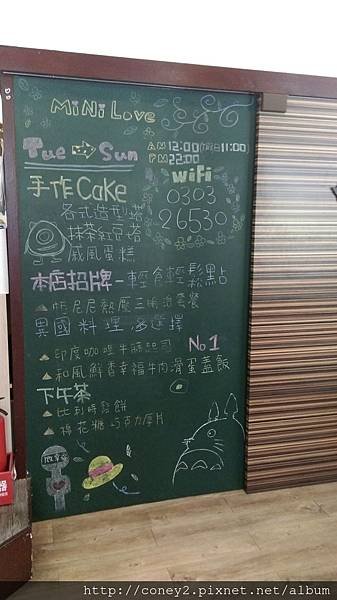 MiNi Love
Tue ⇨ Sun
AM 12:00 11:00
PM 22:00
手作Cake
wiFi
0303
26530
各式造型塔
抹茶紅豆塔
戚風蛋糕
本店招牌-輕食輕鬆點
帕尼尼熱壓三明治套餐
異國料理多選擇
NO1
印度咖哩牛蒜起司
和風鮮香幸福牛肉滑蛋蓋飯
下午茶
比利時鬆餅
棉花糖巧克力厚片
http://coney2.pixnet.net/album